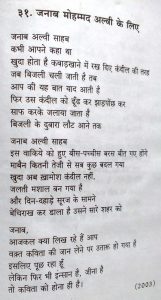 ३१. जनाब मोहम्मद अल्वी के लिए
जनाब अल्वी साहब
कभी आपने कहा था
खुदा होता है कबाड़खाने में रख दिए कंदील की तरह
जब बिजली चली जाती है तब
आप की यह बात याद आती है
फिर उस कंदील को ढूँढ झाड़पोछ कर
साफ करके जलाया जाता है
बिजली के दुबारा लौट आने तक
जनाब अल्वी साहब
इस वाकिये को हुए बीस-पच्चीस बरस बीत गए होंगे
माबैन कितनी तेजी से सब बदल गया है
खुदा अब खामोश कंदील नहीं,
जलती मशाल बन गया है
और दिन-दहाड़े सूरज के सामने
बेचिराख कर डाला है उसने सारे शहर को
जनाब,
आजकल क्या लिख रहे हैं आप
वक़्त कविता की जान लेने पर उतारू हो गया है
इसलिए पूछ रहा हूँ
लेकिन फिर भी इन्सान है, जीना है
तो कविता को होना ही है।
(2003)